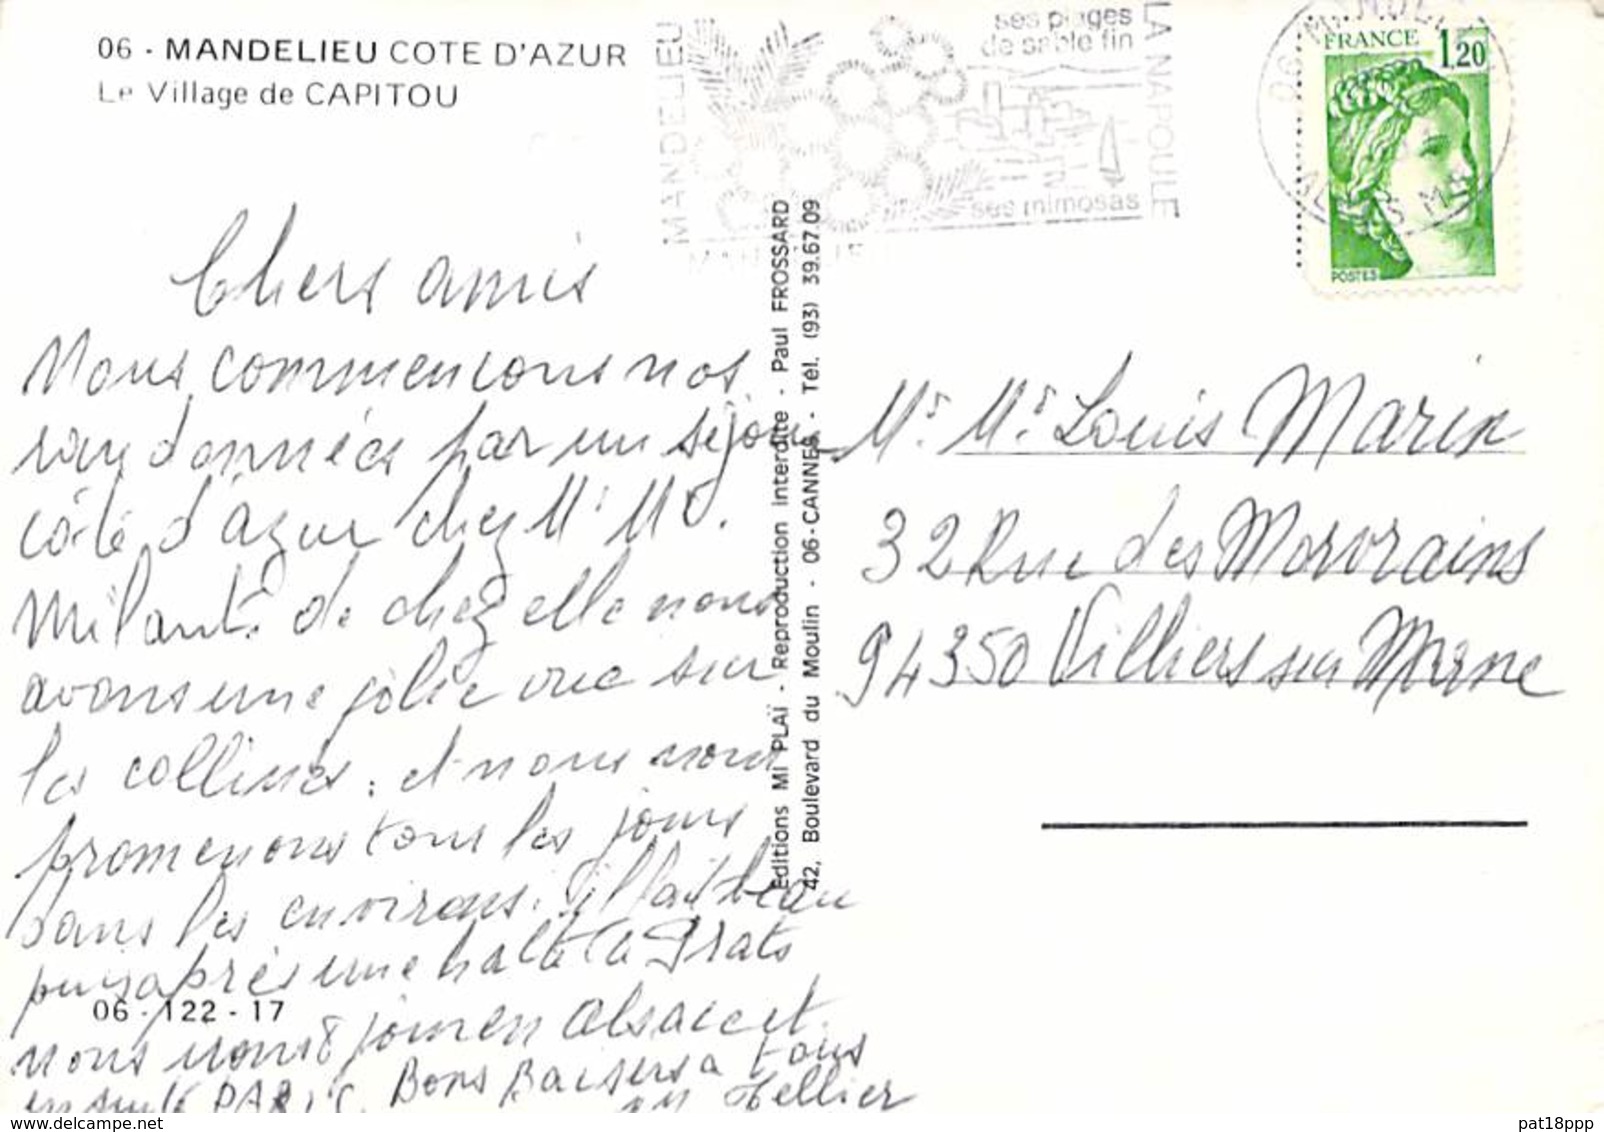 06 - MANDELIEU COTE D'AZUR
Le Village de CAPITOU
MANDELIEU
ses plages
de sable fin
LA NAPOULE
ses mimosas
FRANCE 1,20
POSTES
Chers amis
Nous commencons nos
randonnées par un séjour
côte d'azur chez Mr Me.
de chez elle nous
avons une jolie vue sur
les collines. et nous nous
promenons tous les jours
dans les environs. il fait beau
puis après une halte a Prats
nous 8 jours en Alsace et
ensuite PARIS. Bons Baisers a tous
Tellier
Editions MI PLAÏ - Reproduction Interdite - Paul FROSSARD
42, Boulevard du Moulin - 06-CANNES - Tél. (93) 39.67.09
Mr Me Louis Marin
32 Rue des Morvrains
94350 Villiers sur Marne
06 - 122 - 17
pat18ppp